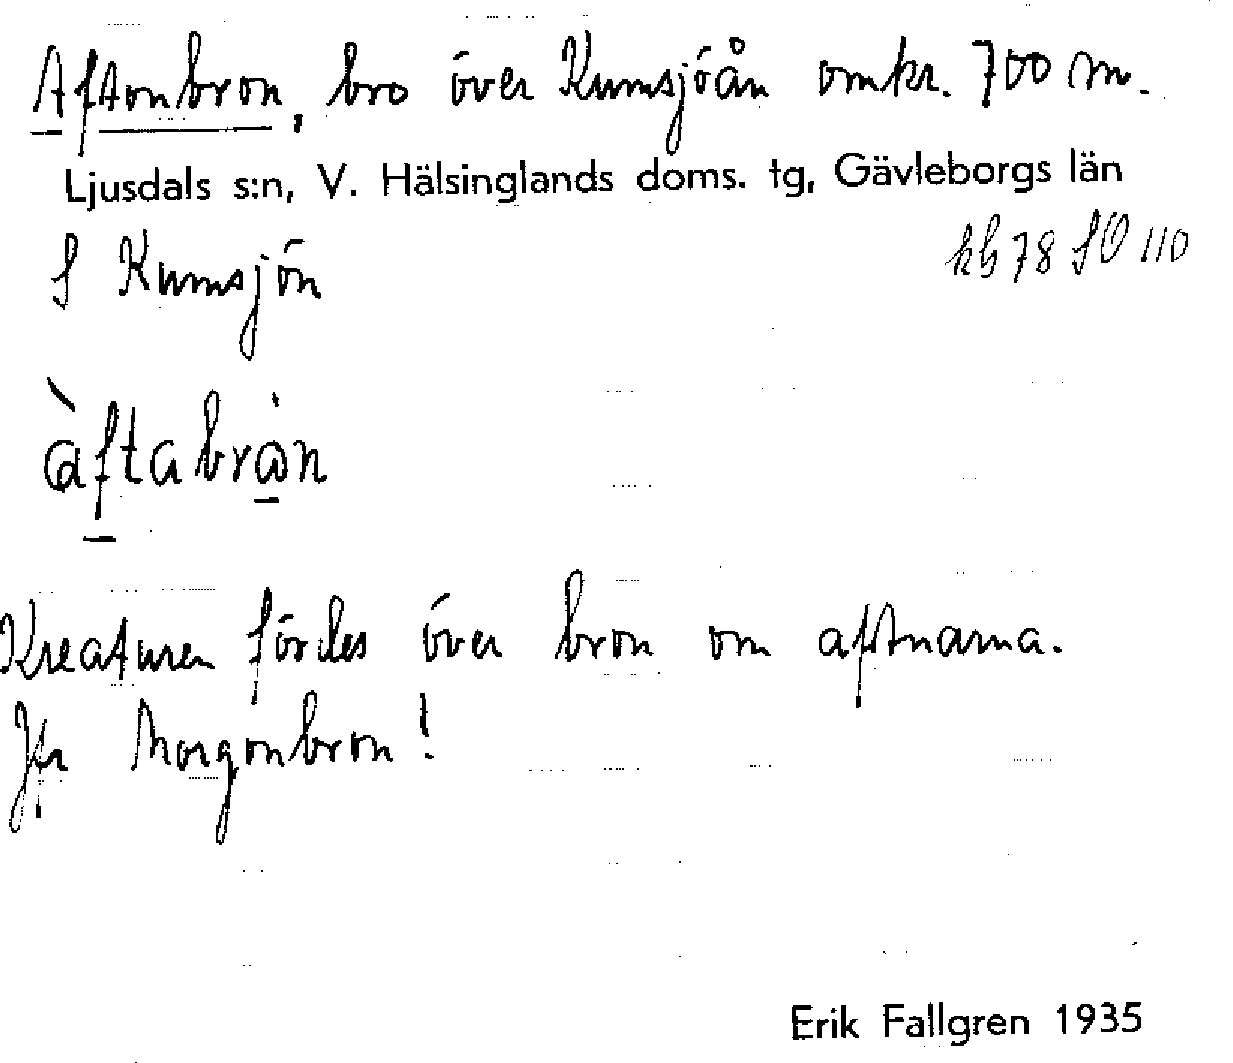 Aftonbron, bro över Kumsjöån omkr. 700 m.
Ljusdals s:n, V. Hälsinglands doms. tg, Gävleborgs län
S Kumsjön
kb 78 SO 110
àftabrån
Kreaturen fördes över bron om aftnarna.
Jfr Morgonbron!
Erik Fallgren 1935